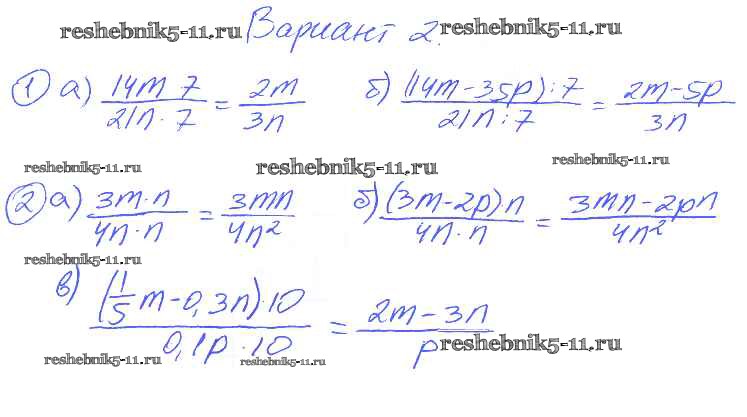 reshebnik5-11.ru Вариант 2. reshebnik5-11.ru
① а) (14m 7)/(21n · 7) = 2m/3n б) ((14m - 35p) : 7)/(21n : 7) = (2m - 5p)/3n
reshebnik5-11.ru reshebnik5-11.ru reshebnik5-11.ru
② а) (3m · n)/(4n · n) = 3mn/4n² б) ((3m - 2p) n)/(4n · n) = (3mn - 2pn)/4n²
reshebnik5-11.ru
в) ((1/5 m - 0,3n) · 10)/(0,1p · 10) = (2m - 3n)/p
reshebnik5-11.ru reshebnik5-11.ru reshebnik5-11.ru